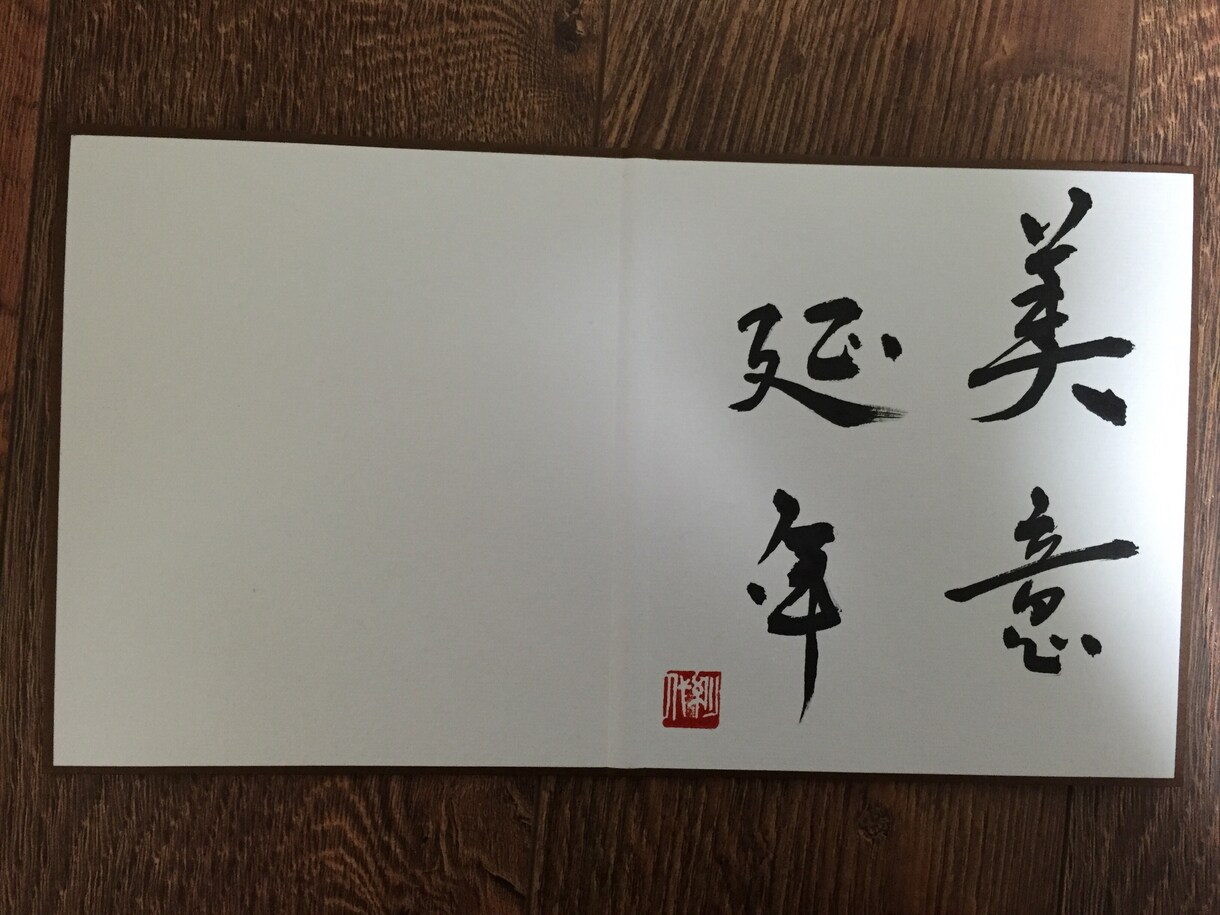 美意
延年